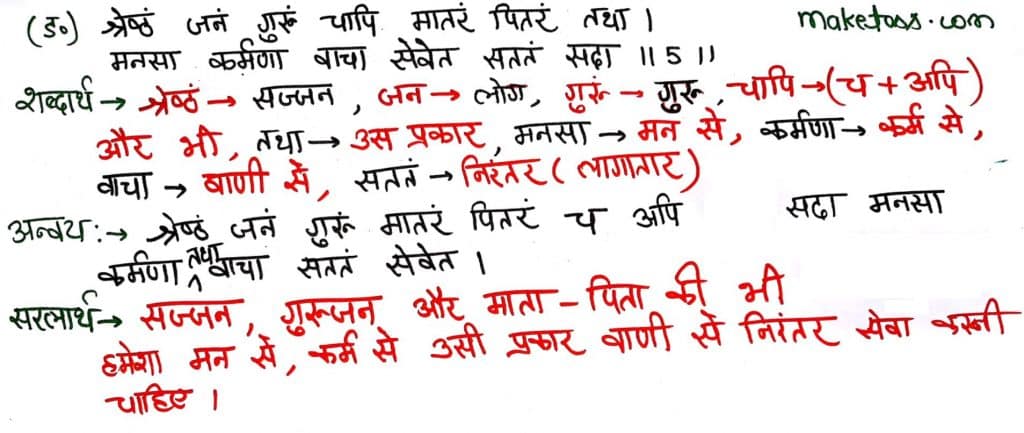 (ङ०) श्रेष्ठं जनं गुरूं चापि मातरं पितरं तथा । maketoss.com
मनसा कर्मणा वाचा सेवेत सततं सदा ॥5॥
शब्दार्थ → श्रेष्ठं → सज्जन, जन → लोग, गुरूं → गुरू, चापि → (च + अपि)
और भी, तथा → उस प्रकार, मनसा → मन से, कर्मणा → कर्म से,
वाचा → बाणी से, सततं → निरंतर (लागातार)
अन्वय :→ श्रेष्ठं जनं गुरूं मातरं पितरं च अपि सदा मनसा
कर्मणा तथा वाचा सततं सेवेत ।
सरलार्थ → सज्जन, गुरूजन और माता - पिता की भी
हमेशा मन से, कर्म से उसी प्रकार वाणी से निरंतर सेवा करनी
चाहिए ।